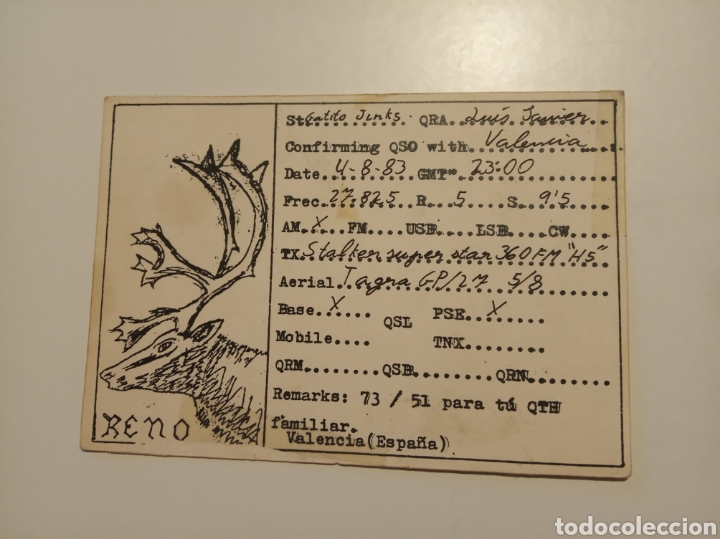 St Gatito Jinks. QRA Luis Javier
Confirming QSO with Valencia
Date 4-8-83 GMT 23:00
Frec. 27.825 R. 5 S. 9'5
AM. X FM. USB. LSB. CW.
TX. Stalker super star 360 FM "H5"
Aerial Tagra GP/27 5/8
Base X QSL PSE. X
Mobile.... TNX.
QRM QSB QRN
Remarks: 73 / 51 para tú QTH
familiar.
Valencia(España)
RENO
todocoleccion